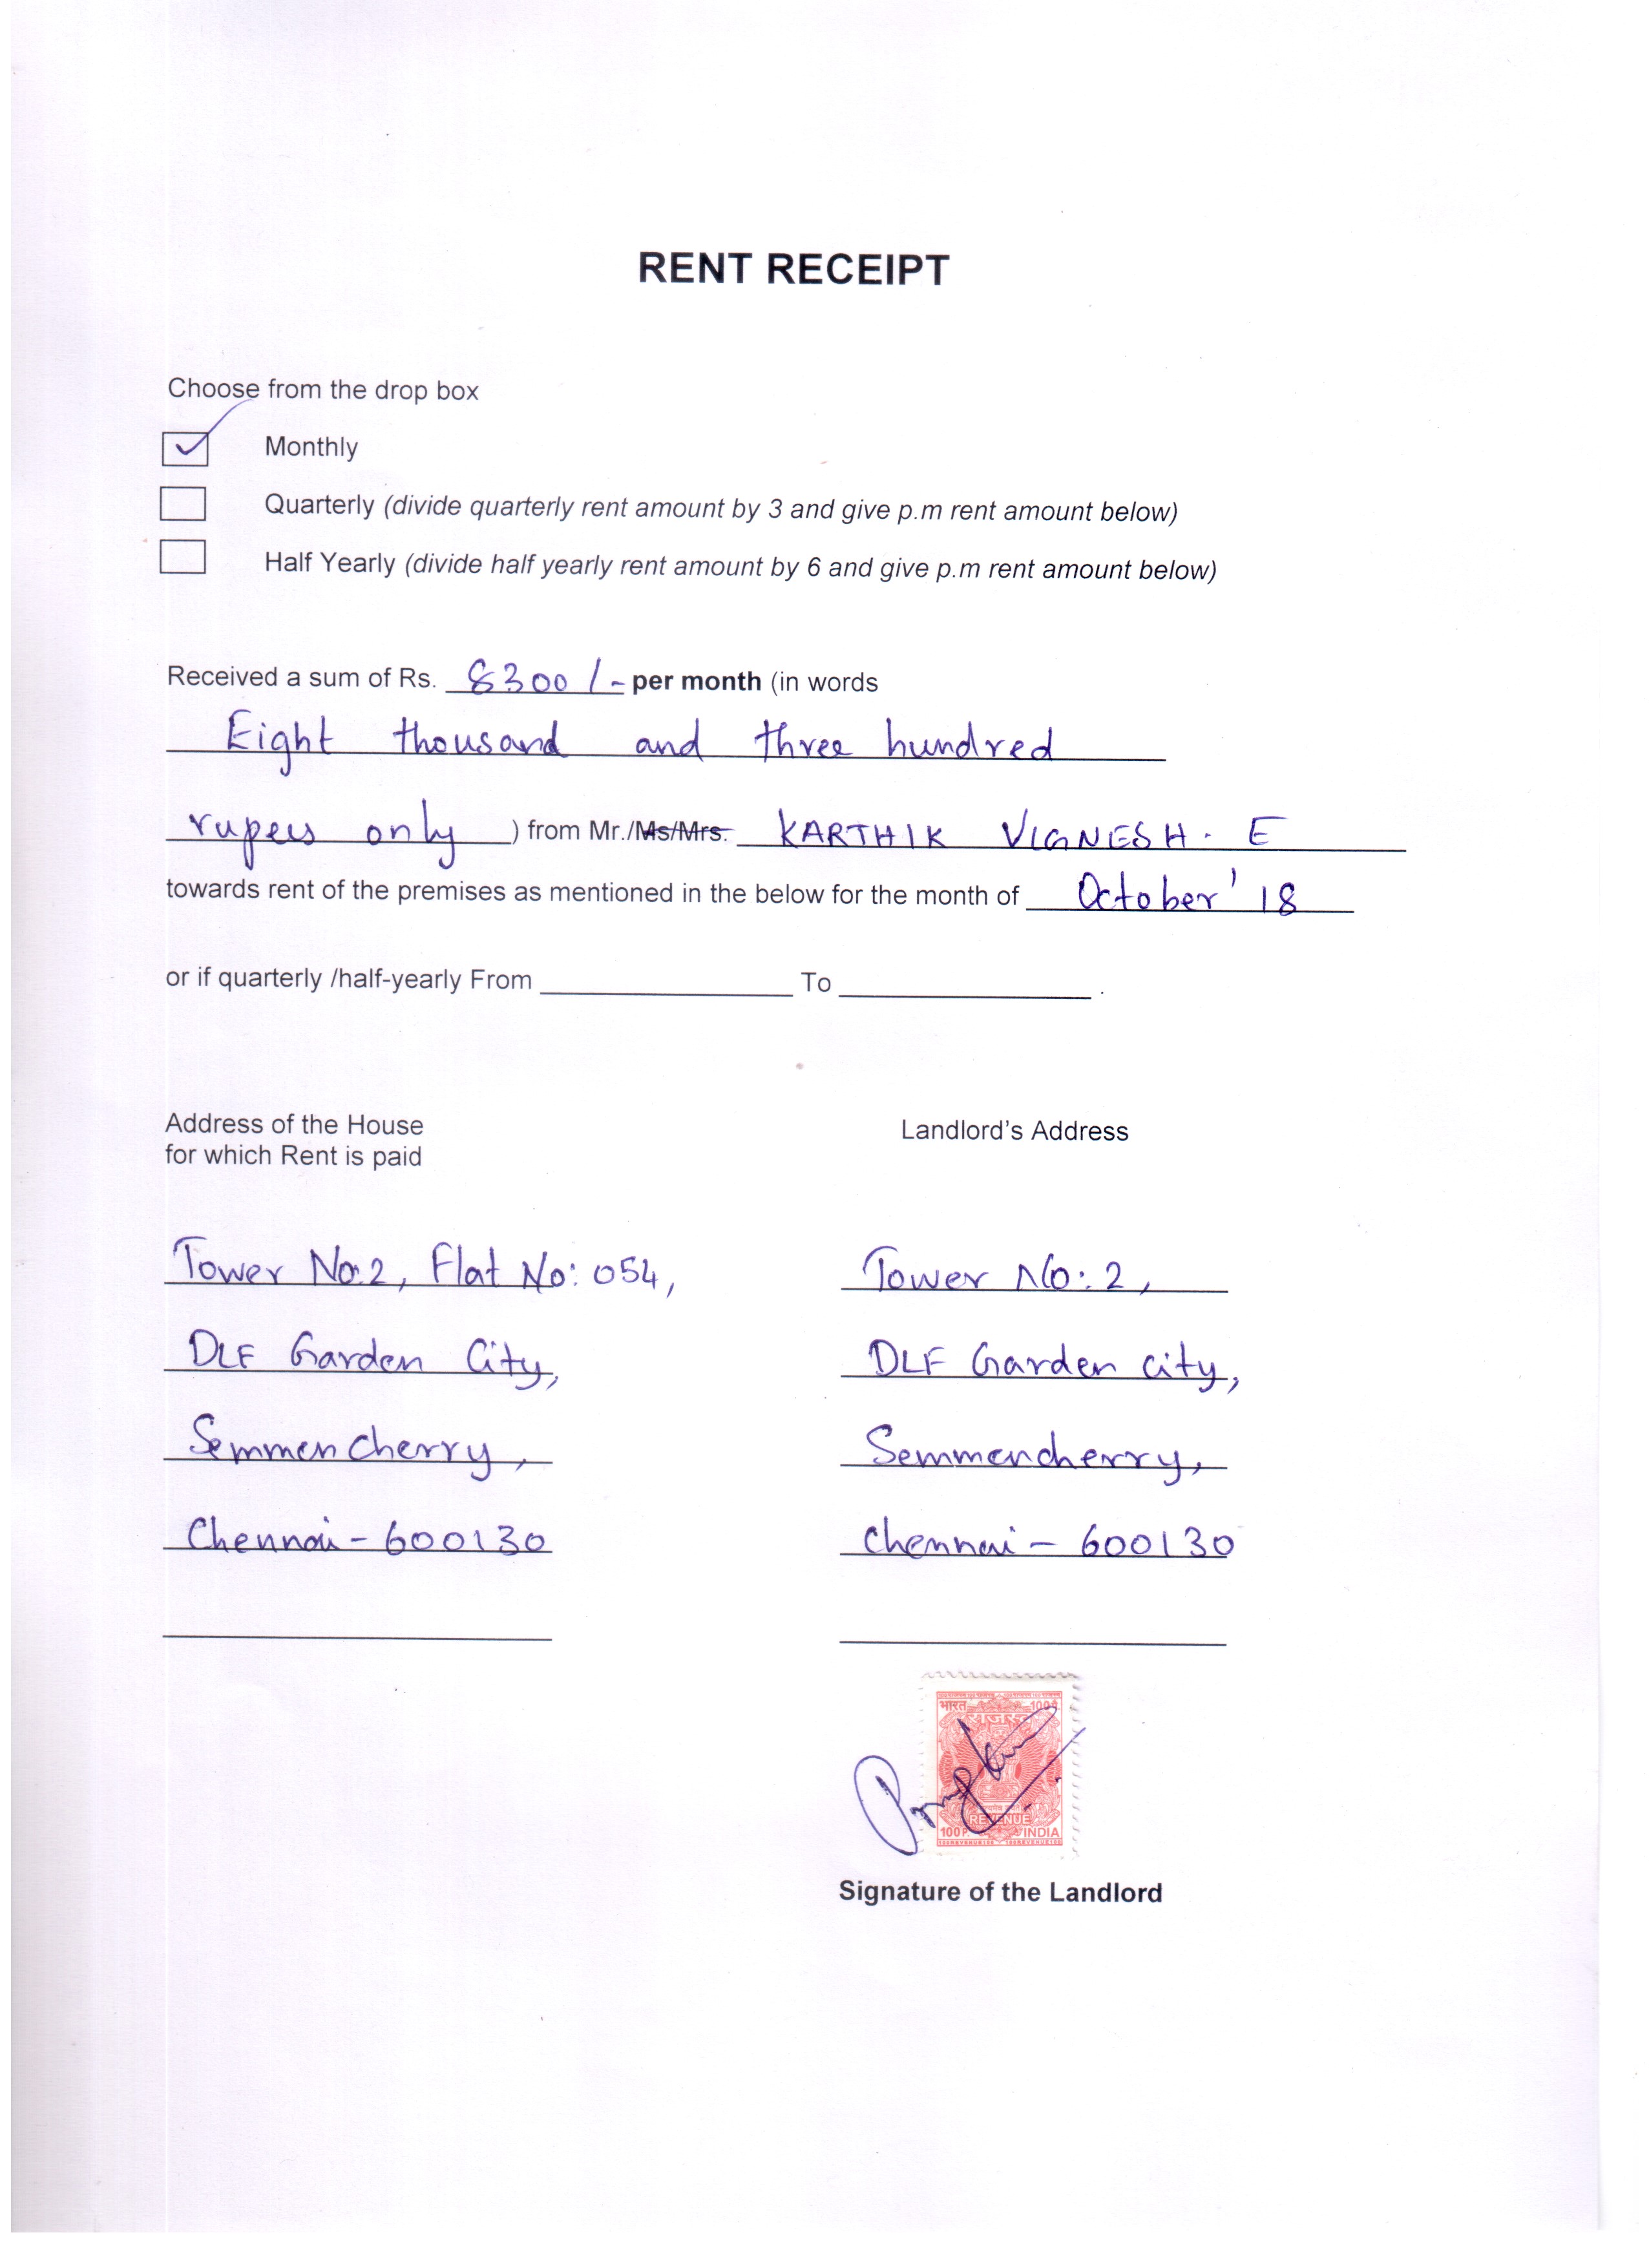 RENT RECEIPT
Choose from the drop box
Monthly
Quarterly (divide quarterly rent amount by 3 and give p.m rent amount below)
Half Yearly (divide half yearly rent amount by 6 and give p.m rent amount below)
Received a sum of Rs. 8300/- per month (in words
Eight thousand and three hundred
rupees only ) from Mr./Ms/Mrs. KARTHIK VIGNESH. E
towards rent of the premises as mentioned in the below for the month of October '18
or if quarterly /half-yearly From To .
Address of the House
for which Rent is paid
Landlord's Address
Tower No:2, Flat No: 054,
DLF Garden City,
Semmencherry,
Chennai - 600130
Tower No: 2,
DLF Garden city,
Semmencherry,
Chennai - 600130
भारत 100
राजस्व
REVENUE
100P. INDIA
Signature of the Landlord